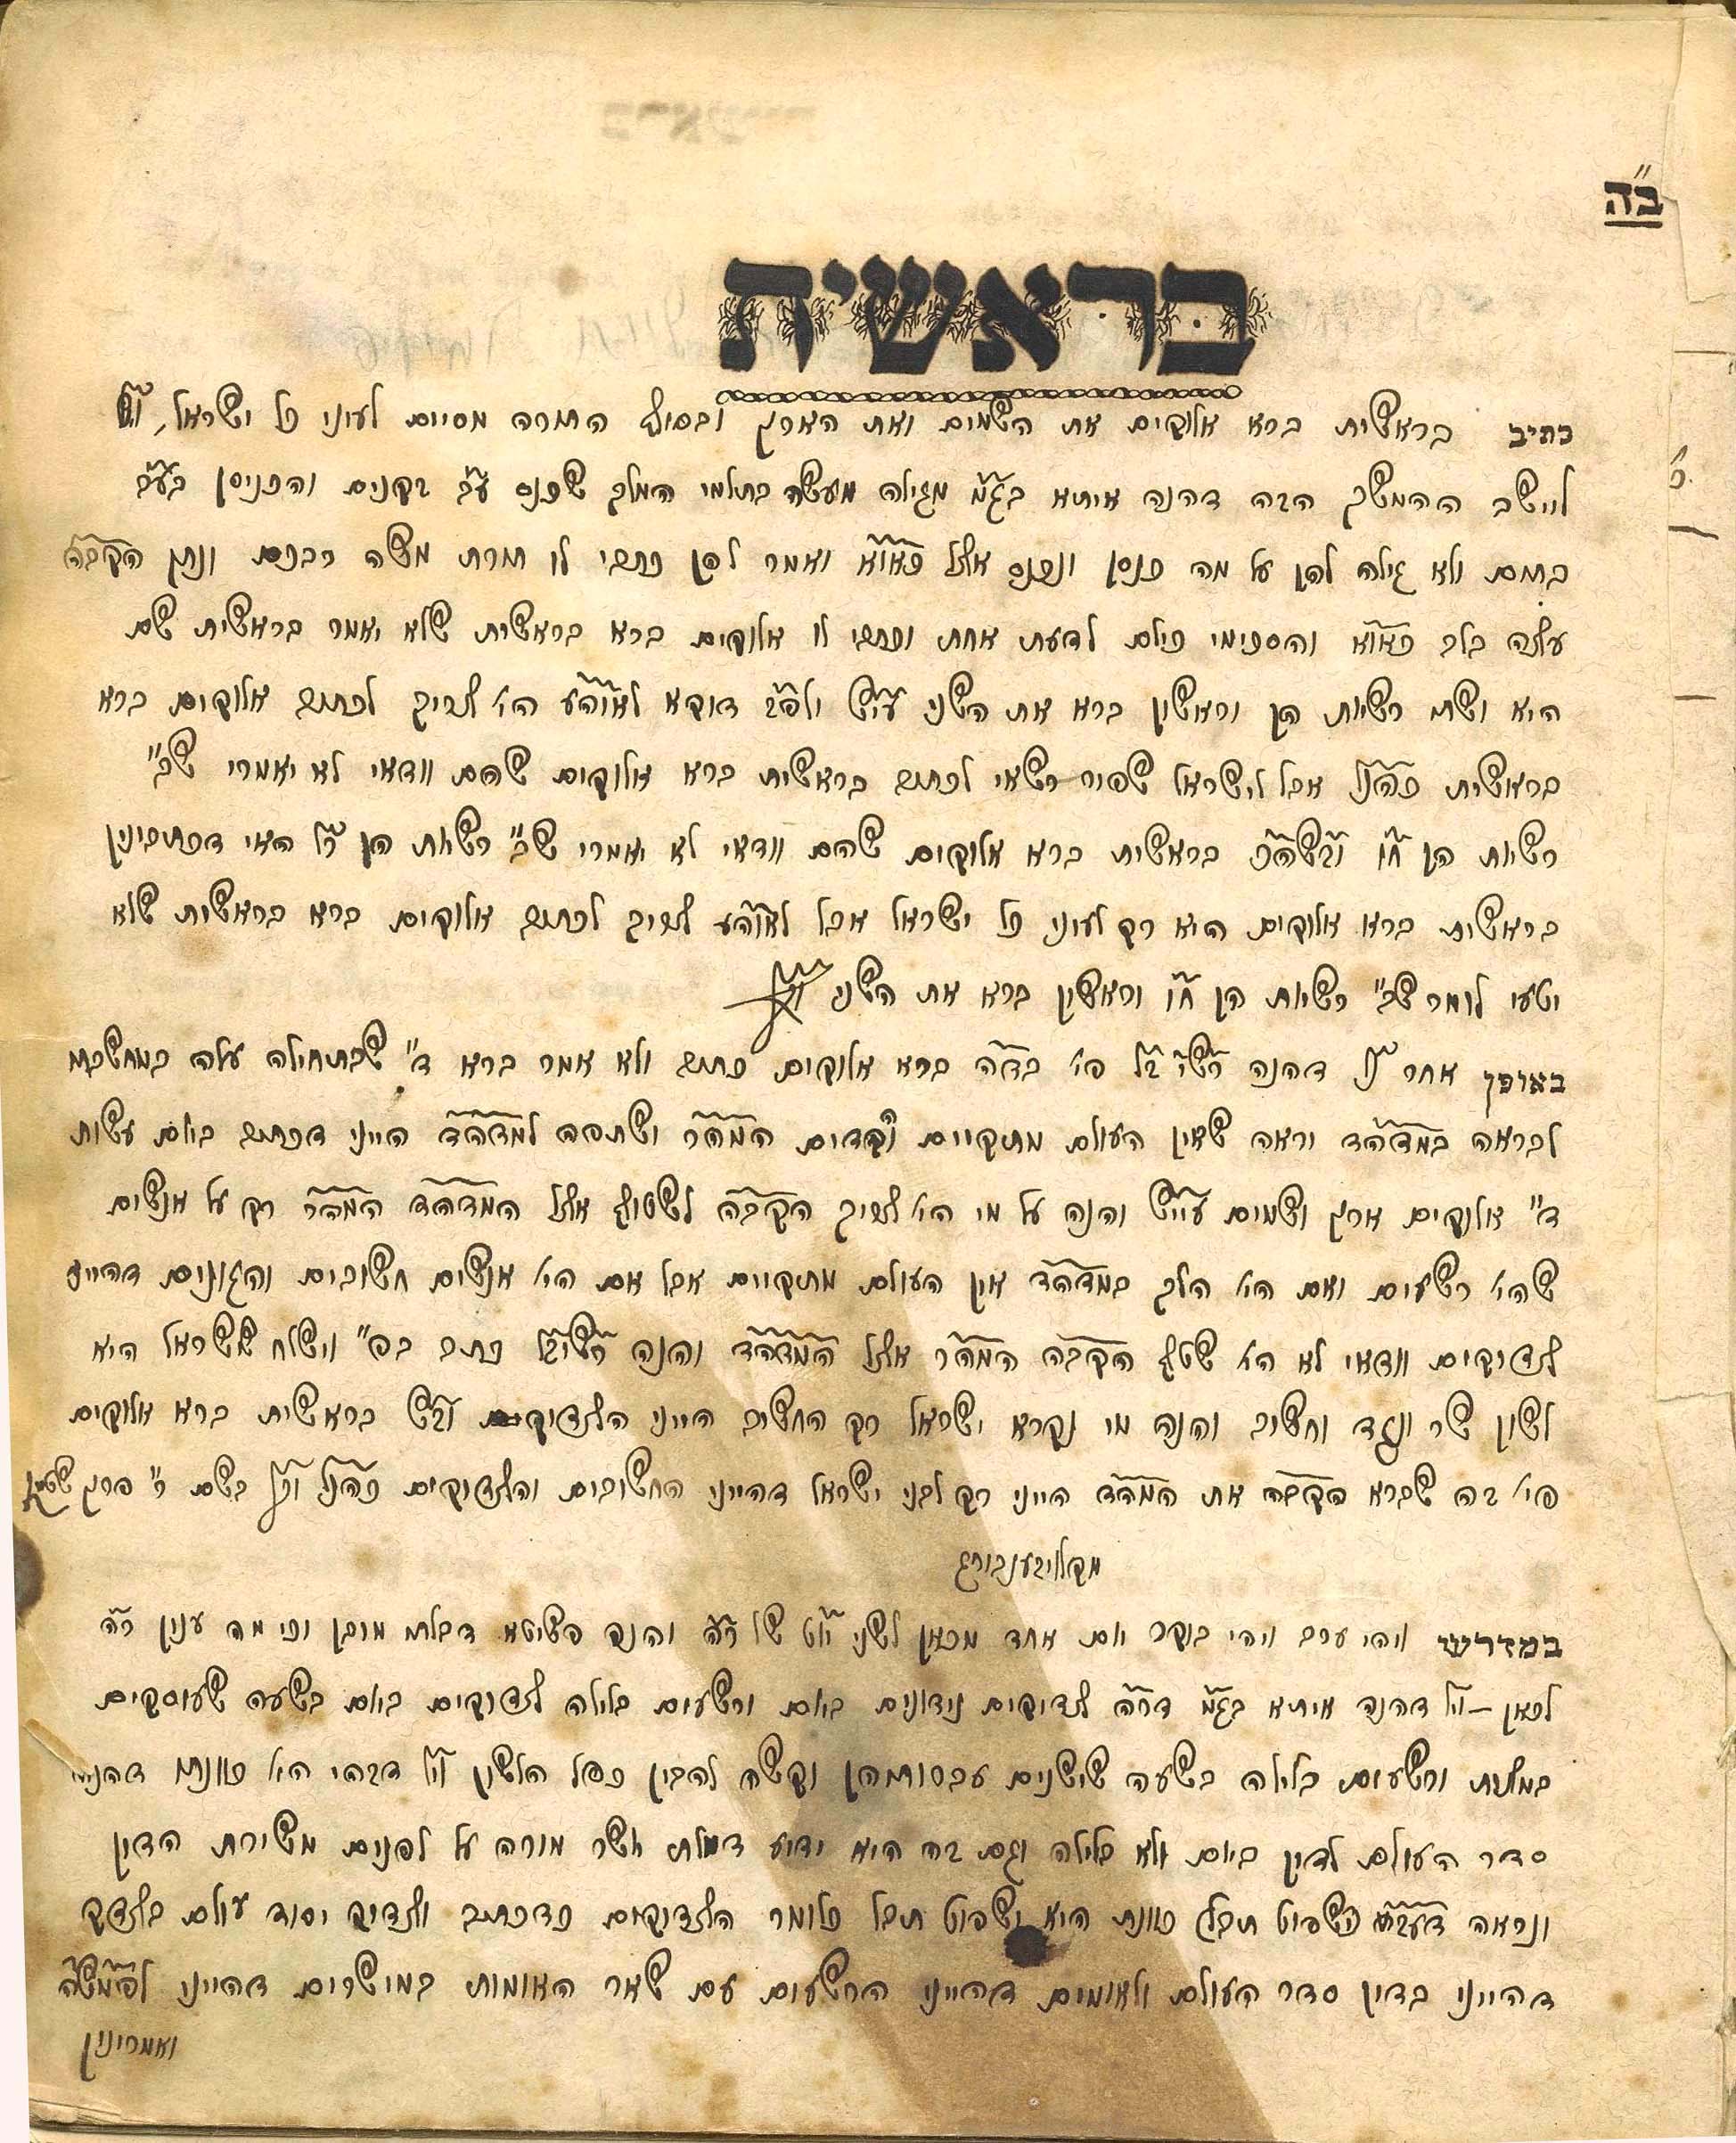 ב"ה
בראשית
כתיב בראשית ברא אלוקים את השמים ואת הארץ ובסוף התורה מסיים לעיני כל ישראל, וי"ל
ליישב ההמשך הזה דהנה איתא בגמ' מגילה מעשה בתלמי המלך שכנס ע"ב זקנים והכניסן בע"ב
בתים ולא גילה להן על מה כנסן ונכנס אצל כאו"א ואמר להן כתבו לי תורת משה רבכם ונתן הקב"ה
עצה בלב כאו"א והסכימו כולם לדעת אחת וכתבו לו אלוקים ברא בראשית שלא יאמר בראשית שם
היא ושתי רשיות הן וראשון ברא את השני עיי"ש ולפ"ז דוקא לאוה"ע הי' צריך לכתוב אלוקים ברא
בראשית כהנ"ל אבל לישראל שפיר רשאי לכתוב בראשית ברא אלוקים שהם וודאי לא יאמרו שב"
רשיות הן ח"ו וז"ש בראשית ברא אלוקים שהם וודאי לא יאמרו שב" רשיות הן כל האי דכתבינין
בראשית ברא אלוקים היא רק לעיני כל ישראל אבל לאוה"ע צריך לכתוב אלוקים ברא בראשית שלא
יטעו לומר שב" רשיות הן ח"ו וראשון ברא את השני וק"ל
באופן אחר נ"ל דהנה רש"י ז"ל פי' בד"ה ברא אלוקים כתוב ולא אמר ברא ד" שבתחילה עלה במחשבתו
לבראה במדה"ד וראה שאין העולם מתקיים הקדים המה"ר ושתפה למדה"ד היינו דכתוב ביום עשות
ד" אלוקים ארץ ושמים עיי"ש והנה על מי הי' צריך הקב"ה לשטוף אצל המדה"ד המה"ר רק על אנשים
שהי' רשעים ואם הי' הלך במדה"ד אין העולם מתקיים אבל אם הי' אנשים חשובים והגונים דהיינו
צדיקים וודאי לא הי' שטף הקב"ה המה"ר אצל המדה"ד והנה רש"י ז"ל כתב בפ" וישלח שישראל היא
לשון שר ונגיד וחשיב והנה מי נקרא ישראל רק החשיב היינו הצדיקים וז"ש בראשית ברא אלוקים
פי' זה שברא הקב"ה את המה"ד היינו רק לבני ישראל דהיינו החשובים והצדיקים כהנ"ל וק"ל בשם ר" פרץ
מקלויזענבורג
במדרש ויהי ערב ויהי בוקר יום אחד מכאן לשני יו"ט של ר"ה והנה פשיטא דבלתי מובן וכי מה ענין ר"ה
לכאן – וי"ל דהנה איתא בגמ' דר"ה צדיקים נידונים ביום ורשעים בלילה צדיקים ביום בשעה שעוסקים
במצות ורשעים בלילה בשעה שישנים וקשה להבין כפל הלשון וי"ל דזהו הי' כוונתו דהנה
סדר העולם לדון ביום ולא בלילה וגם זה היא ידוע דמלת אשר מורה על לפנים משורת הדין
ונראה ישפוט תבל כוונת היא ישפוט תבל כלומר הצדיקים כדכתיב וצדיק יסוד עולם בצדק
דהיינו בדין סדר העולם ולאומים דהיינו הרשעים עם שאר האומות במישרים דהיינו לפמש"ה
ואמרינין